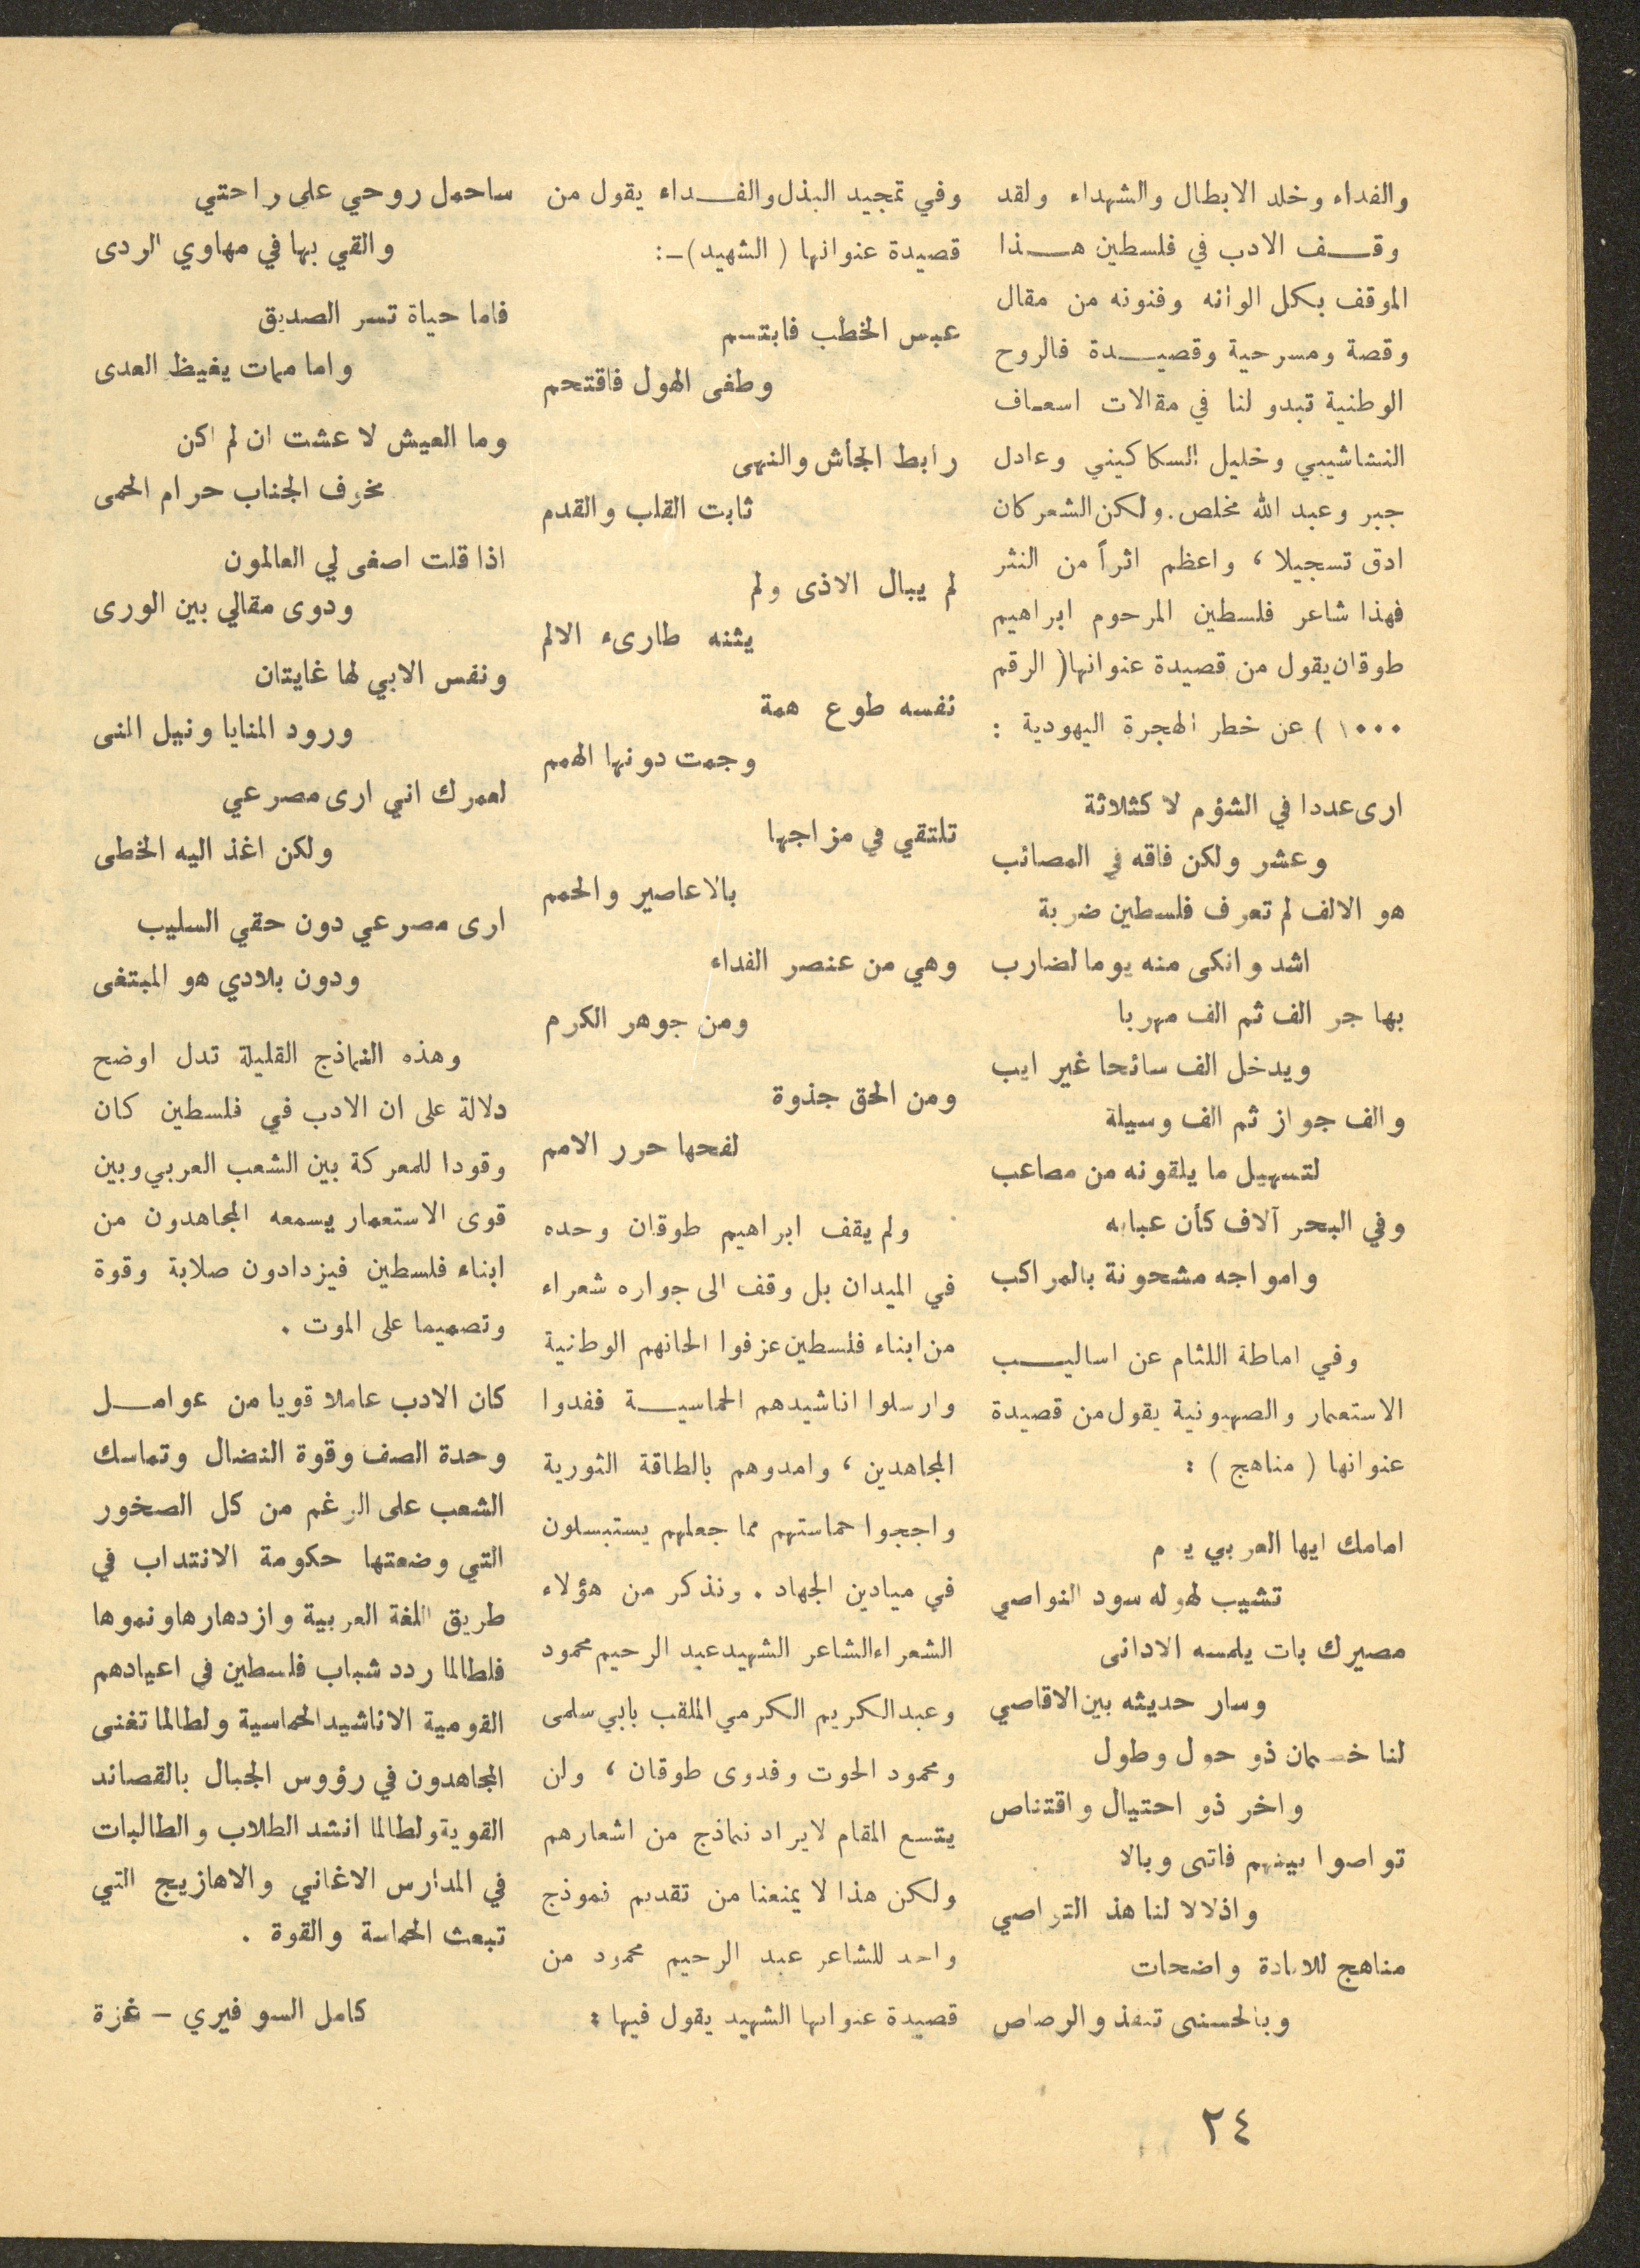 والفداء وخلد الابطال والشهداء ولقد
وقف الادب في فلسطين هذا
الموقف بكل الوانه وفنونه من مقال
وقصة ومسرحية وقصيدة فالروح
الوطنية تبدو لنا في مقالات اسعاف
النشاشيبي وخليل السكاكيني وعادل
جبر وعبد الله مخلص. ولكن الشعر كان
ادق تسجيلا ، واعظم اثراً من النثر
فهذا شاعر فلسطين المرحوم ابراهيم
طوقان يقول من قصيدة عنوانها ( الرقم
١٠٠٠ ) عن خطر الهجرة اليهودية :
ارى عددا في الشؤم لا كثلاثة
وعشر ولكن فاقه في المصائب
هو الالف لم تعرف فلسطين ضربة
اشد وانكى منه يوما لضارب
يهاجر الف ثم الف مهربا
ويدخل الف سائحا غير ايب
والف جواز ثم الف وسيلة
لتسهيل ما يلقونه من مصاعب
وفي البحر آلاف كأن عبابه
وامواجه مشحونة بالمراكب
وفي اماطة اللثام عن اساليب
الاستعمار والصهيونية يقول من قصيدة
عنوانها ( مناهج ) :
امامك ايها العربي ي م
تشيب لهوله سود النواصي
مصيرك بات يلمسه الادانى
وسار حديثه بين الاقاصي
لنا خصمان ذو حول وطول
واخر ذو احتيال واقتناص
تواصوا بينهم فاتى وبالا
واذلالا لنا هذ التراصي
مناهج للابادة واضحات
وبالحسنى تنفذ والرصاص
وفي تمجيد البذل والفداء يقول من
قصيدة عنوانها ( الشهيد ) -:
عبس الخطب فابتسم
وطغى الهول فاقتحم
رابط الجأش والنهى
ثابت القلب والقدم
لم يبال الاذى ولم
يثنه طارىء الالم
نفسه طوع همة
وجمت دونها الهمم
تلتقي في مزاجها
بالاعاصير والحمم
وهي من عنصر الفداء
ومن جوهر الكرم
ومن الحق جذوة
لفحها حرر الامم
ولم يقف ابراهيم طوقان وحده
في الميدان بل وقف الى جواره شعراء
من ابناء فلسطين عزفوا الحانهم الوطنية
وارسلوا اناشيدهم الحماسية ففدوا
المجاهدين ، وامدوهم بالطاقة الثورية
واججوا حماستهم مما جعلهم يستبسلون
في ميادين الجهاد . ونذكر من هؤلاء
الشعراء الشاعر الشهيد عبد الرحيم محمود
وعبد الكريم الكرمي الملقب بابي سلمى
ومحمود الحوت وفدوى طوقان ، ولن
يتسع المقام لايراد نماذج من اشعارهم
ولكن هذا لا يمنعنا من تقديم نموذج
واحد للشاعر عبد الرحيم محمود من
قصيدة عنوانها الشهيد يقول فيها :
ساحمل روحي على راحتي
والقي بها في مهاوي الردى
فاما حياة تسر الصديق
واما ممات يغيظ العدى
وما العيش لا عشت ان لم اكن
مخوف الجناب حرام الحمى
اذا قلت اصغى لي العالمون
ودوى مقالي بين الورى
ونفس الابي لها غايتان
ورود المنايا ونيل المنى
لعمرك اني ارى مصرعي
ولكن اغذ اليه الخطى
ارى مصرعي دون حقي السليب
ودون بلادي هو المبتغى
وهذه النماذج القليلة تدل اوضح
دلالة على ان الادب في فلسطين كان
وقودا للمعركة بين الشعب العربي وبين
قوى الاستعمار يسمعه المجاهدون من
ابناء فلسطين فيزدادون صلابة وقوة
وتصميما على الموت .
كان الادب عاملا قويا من عوامل
وحدة الصف وقوة النضال وتماسك
الشعب على الرغم من كل الصخور
التي وضعتها حكومة الانتداب في
طريق اللغة العربية وازدهارها ونموها
فلطالما ردد شباب فلسطين في اعيادهم
القومية الاناشيد الحماسية ولطالما تغنى
المجاهدون في رؤوس الجبال بالقصائد
القوية ولطالما انشد الطلاب والطالبات
في المدارس الاغاني والاهازيج التي
تبعث الحماسة والقوة .
كامل السوفيري - غزة
٢٤